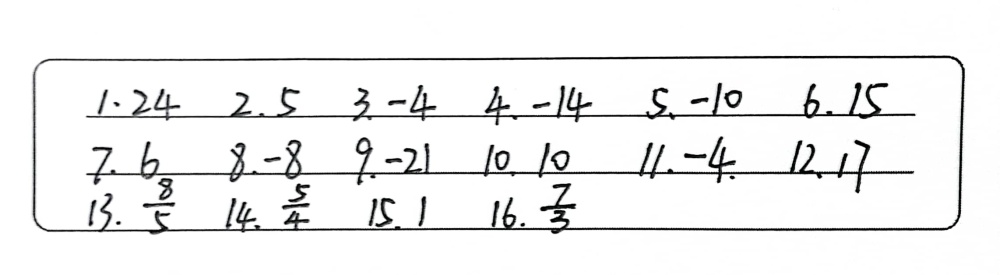 1. 24 2. 5 3. -4 4. -14 5. -10 6. 15
7. 6 8. -8 9. -21 10. 10 11. -4. 12. 17
13. 8/5 14. 5/4 15. 1 16. 7/3